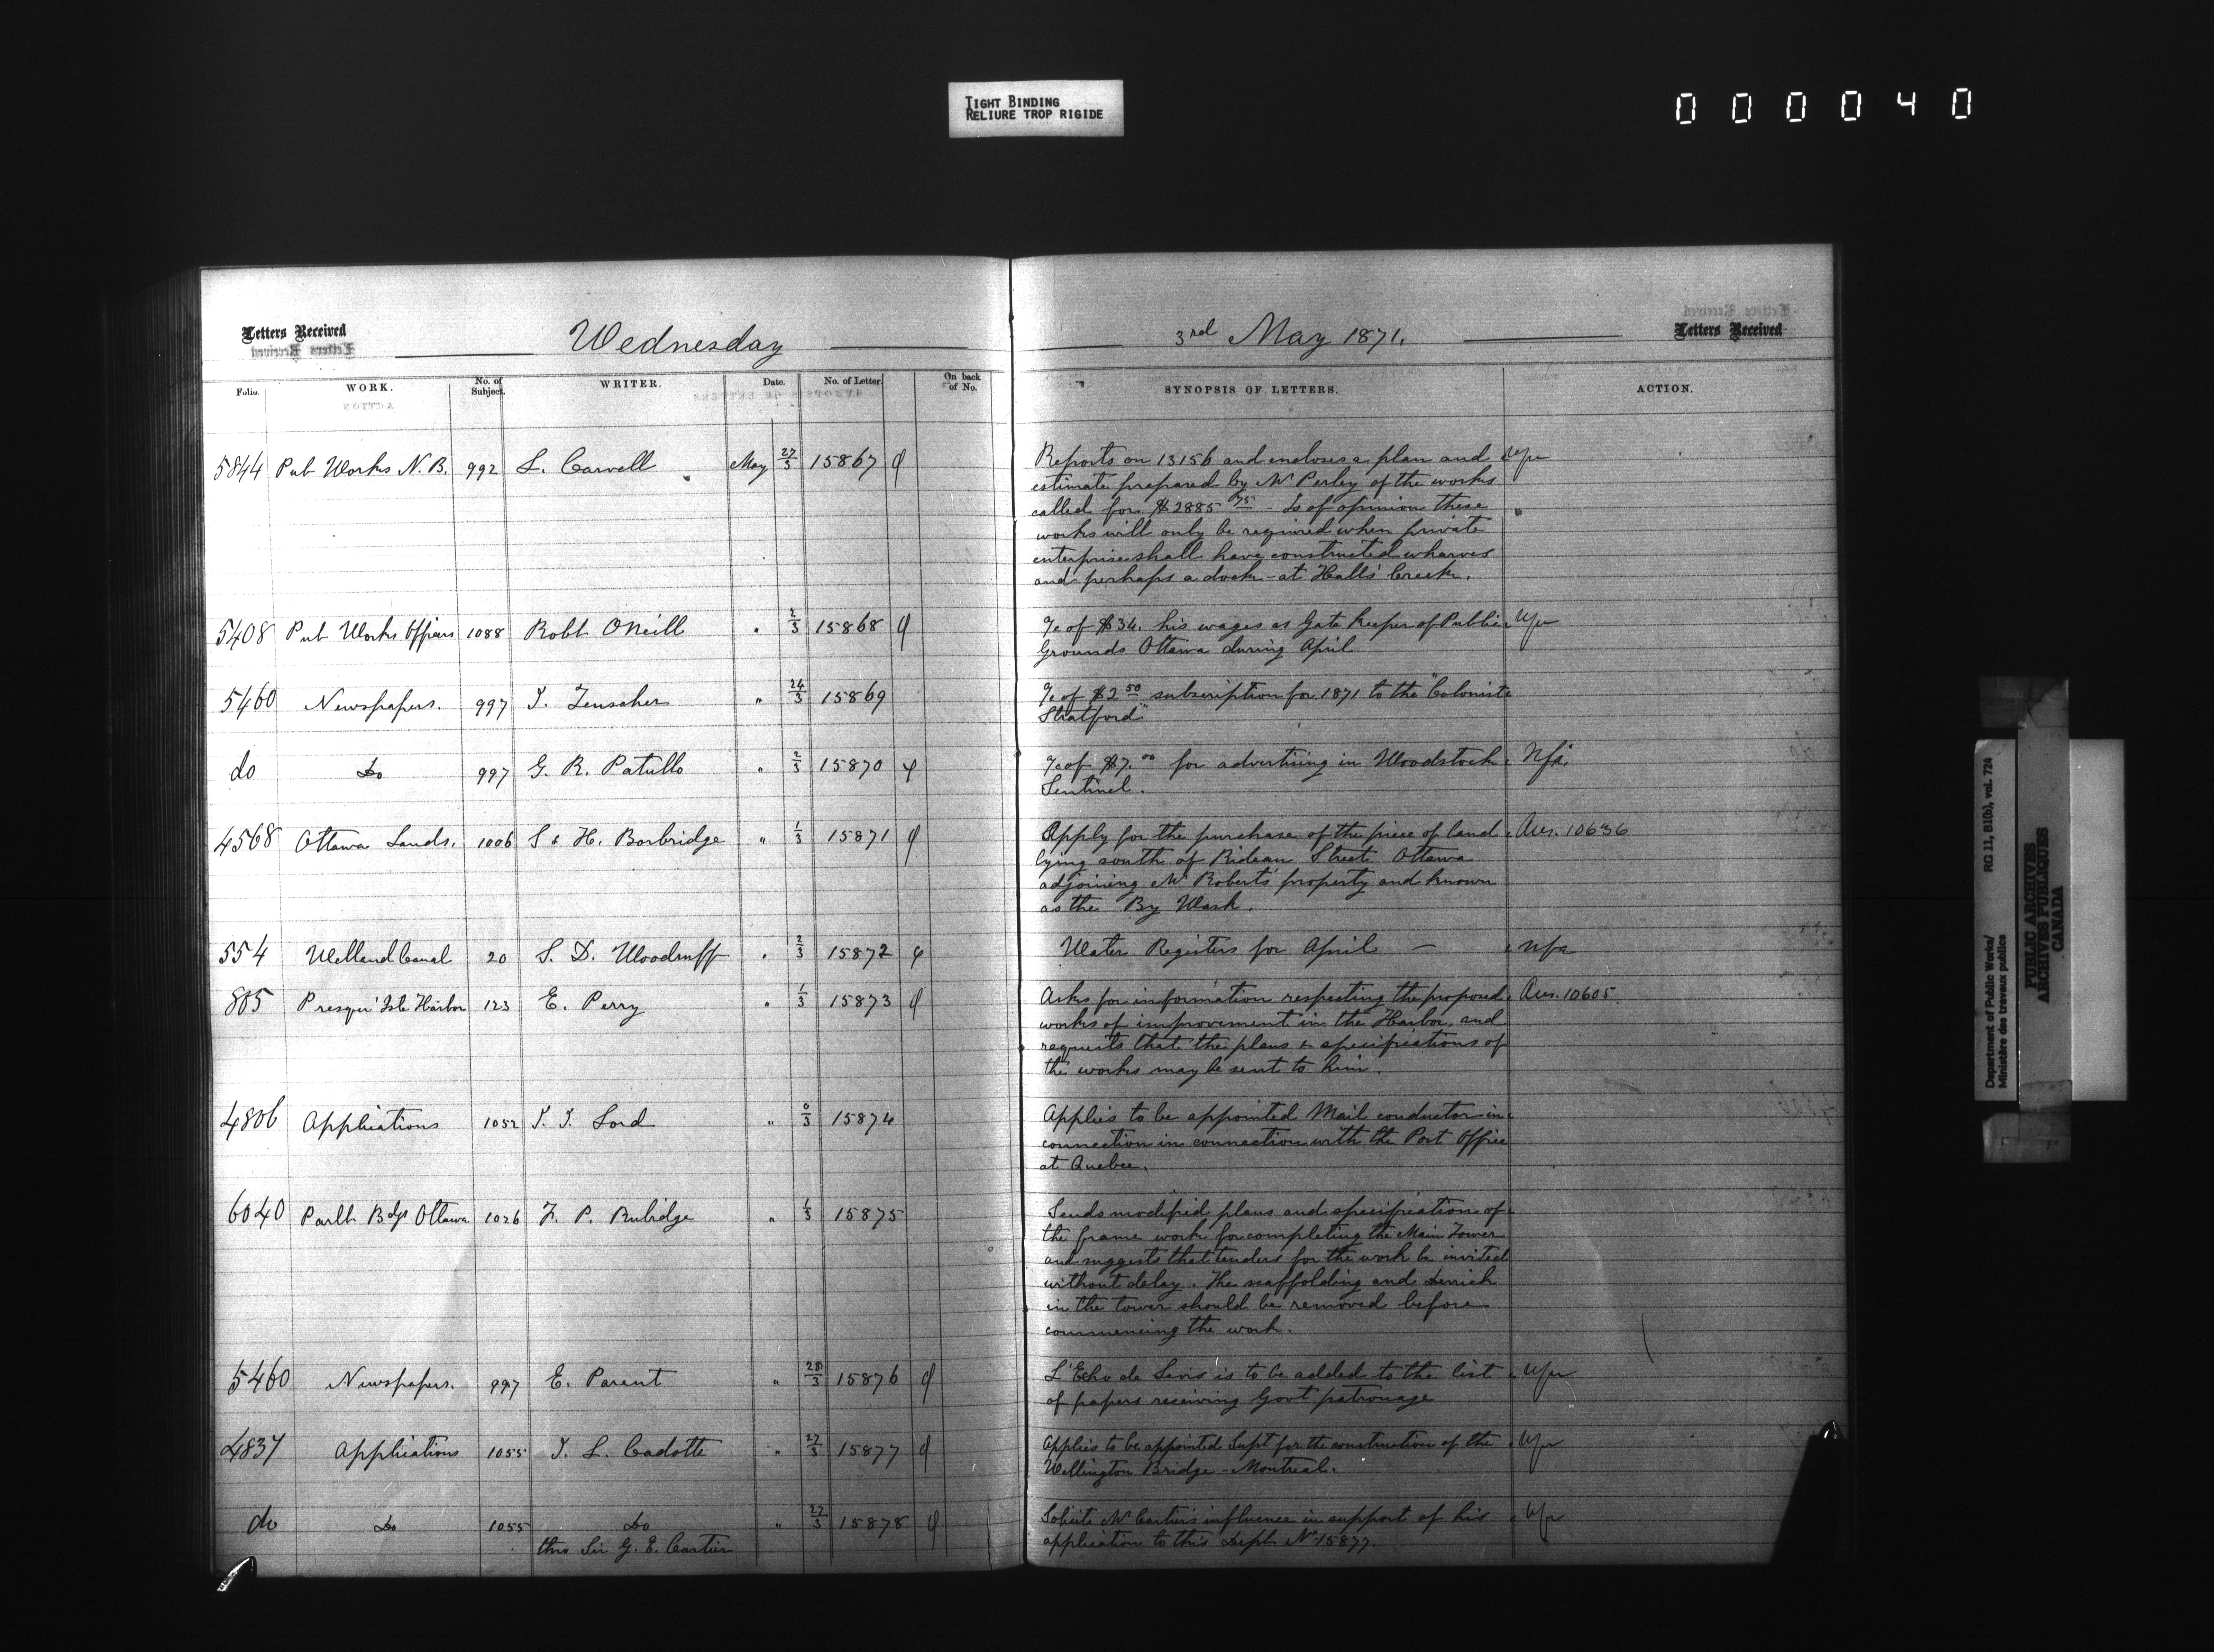 TIGHT BINDING
RELIURE TROP RIGIDE
000040
Letters Received
Wednesday
3rd May 1871.
Letters Received
Folio. WORK. No. of Subject. WRITER. Date. No. of Letter. On back of No. SYNOPSIS OF LETTERS. ACTION.
5844 Pub Works N.B. 992 L. Carvell May 27/3 15867 Reports on 13156 and encloses a plan and
estimate prepared by Mr Perley of the works
called for $2885 75 - Is of opinion these
works will only be required when private
enterprise shall have constructed wharves
and perhaps a dock - at Halls' Creek.
5408 Pub Works Officers 1088 Robt ONeill " 2/3 15868 of $34. his wages as Gate Keeper of Public
Grounds Ottawa during April
5460 Newspapers. 997 " 24/3 15869 of $2 50 subscription for 1871 to the "Coloniste
Stratford"
do Do 997 G. R. Patullo " 2/3 15870 of $7. 00 for advertising in Woodstock Nfa.
Sentinel.
4568 Ottawa Lands. 1006 S & H. Borbridge " 1/3 15871 Apply for the purchase of the piece of land Ans. 10636
lying south of Rideau Street Ottawa
adjoining Mr Roberts' property and known
as the By Wash.
554 Welland Canal 20 S. D. Woodruff " 2/3 15872 Water Registers for April — nfa
805 Presqu' Isle Harbor 123 E. Perry " 1/3 15873 Asks for information respecting the proposed Ans. 10605.
works of improvement in the Harbor, and
requests that the plans & specifications of
the works may be sent to him.
4806 Applications 1052 Lord " 0/3 15874 Applies to be appointed Mail conductor in
connection in connection with the Post Office
at Quebec.
6040 Parlt Bdgs Ottawa 1026 F. P. Rubidge " 1/3 15875 Sends modified plans and specification of
the frame work for completing the Main Tower
and suggests that tenders for the work be invited
without delay. The scaffolding and Derrick
in the tower should be removed before
commencing the work.
5460 Newspapers. 997 E. Parent " 28/3 15876 L'Echo de Levis is to be added to the list
of papers receiving Govt patronage
4837 Applications 1055 J. L. Cadotte " 27/3 15877 Applies to be appointed Supt for the construction of the
Wellington Bridge - Montreal.
do Do 1055 Do " 27/3 15878 Solicits Mr Cartier's influence in support of his
thro Sir G. E. Cartier application to this Dept No 15877.
Department of Public Works/ RG 11, B1(b), vol. 724
Ministère des travaux publics
PUBLIC ARCHIVES
ARCHIVES PUBLIQUES
CANADA